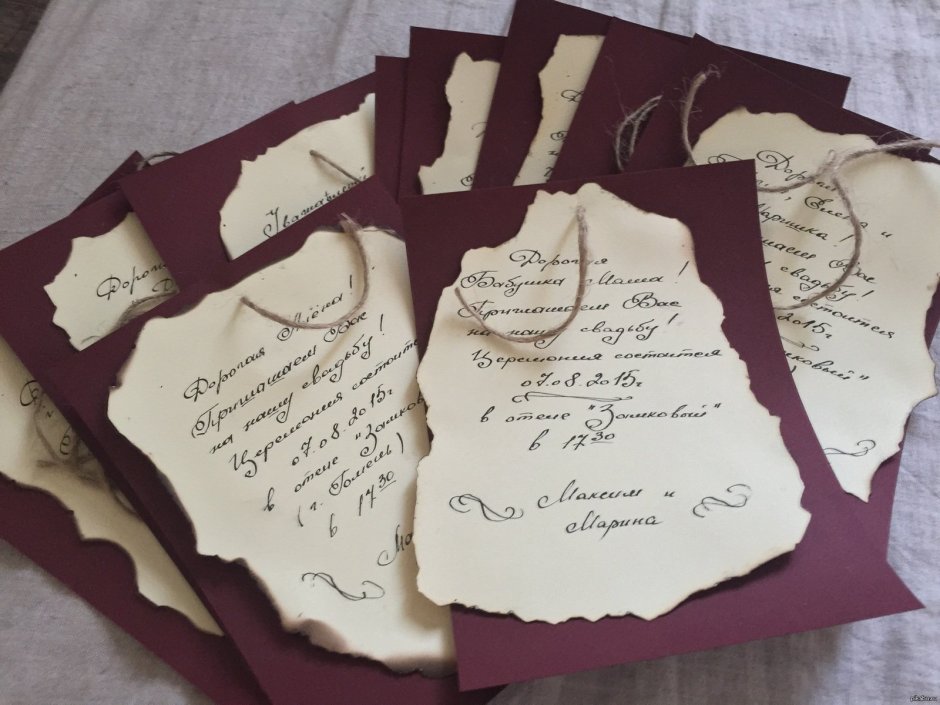 Дорогая
Бабушка Маша!
Приглашаем Вас
на нашу свадьбу!
Церемония состоится
07.08.2015г
в отеле "Замковый"
в 17³⁰
Максим и
Марина
Дорогая
Приглашаем Вас
на нашу свадьбу!
Церемония состоится
07.08.2015г
в отеле "Замковы
(г. Гомель)
в 17³⁰
Ма
Дорогая
Елена и
Маришка!
Вас
свадьбу!
состоится
2015г
Дорог
pikabu.ru